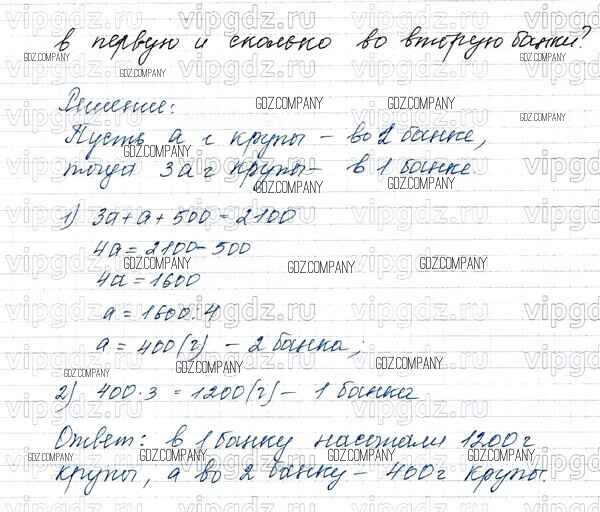 в первую и сколько во вторую банки?
Решение:
Пусть а г крупы - во 2 банке,
тогда 3а г крупы - в 1 банке
1) 3а + а + 500 = 2100
4а = 2100 - 500
4а = 1600
а = 1600 : 4
а = 400 (г) - 2 банка;
2) 400 · 3 = 1200 (г) - 1 банка
Ответ: в 1 банку насыпали 1200 г
крупы, а во 2 банку - 400 г крупы.
GDZ.COMPANY
vipgdz.ru